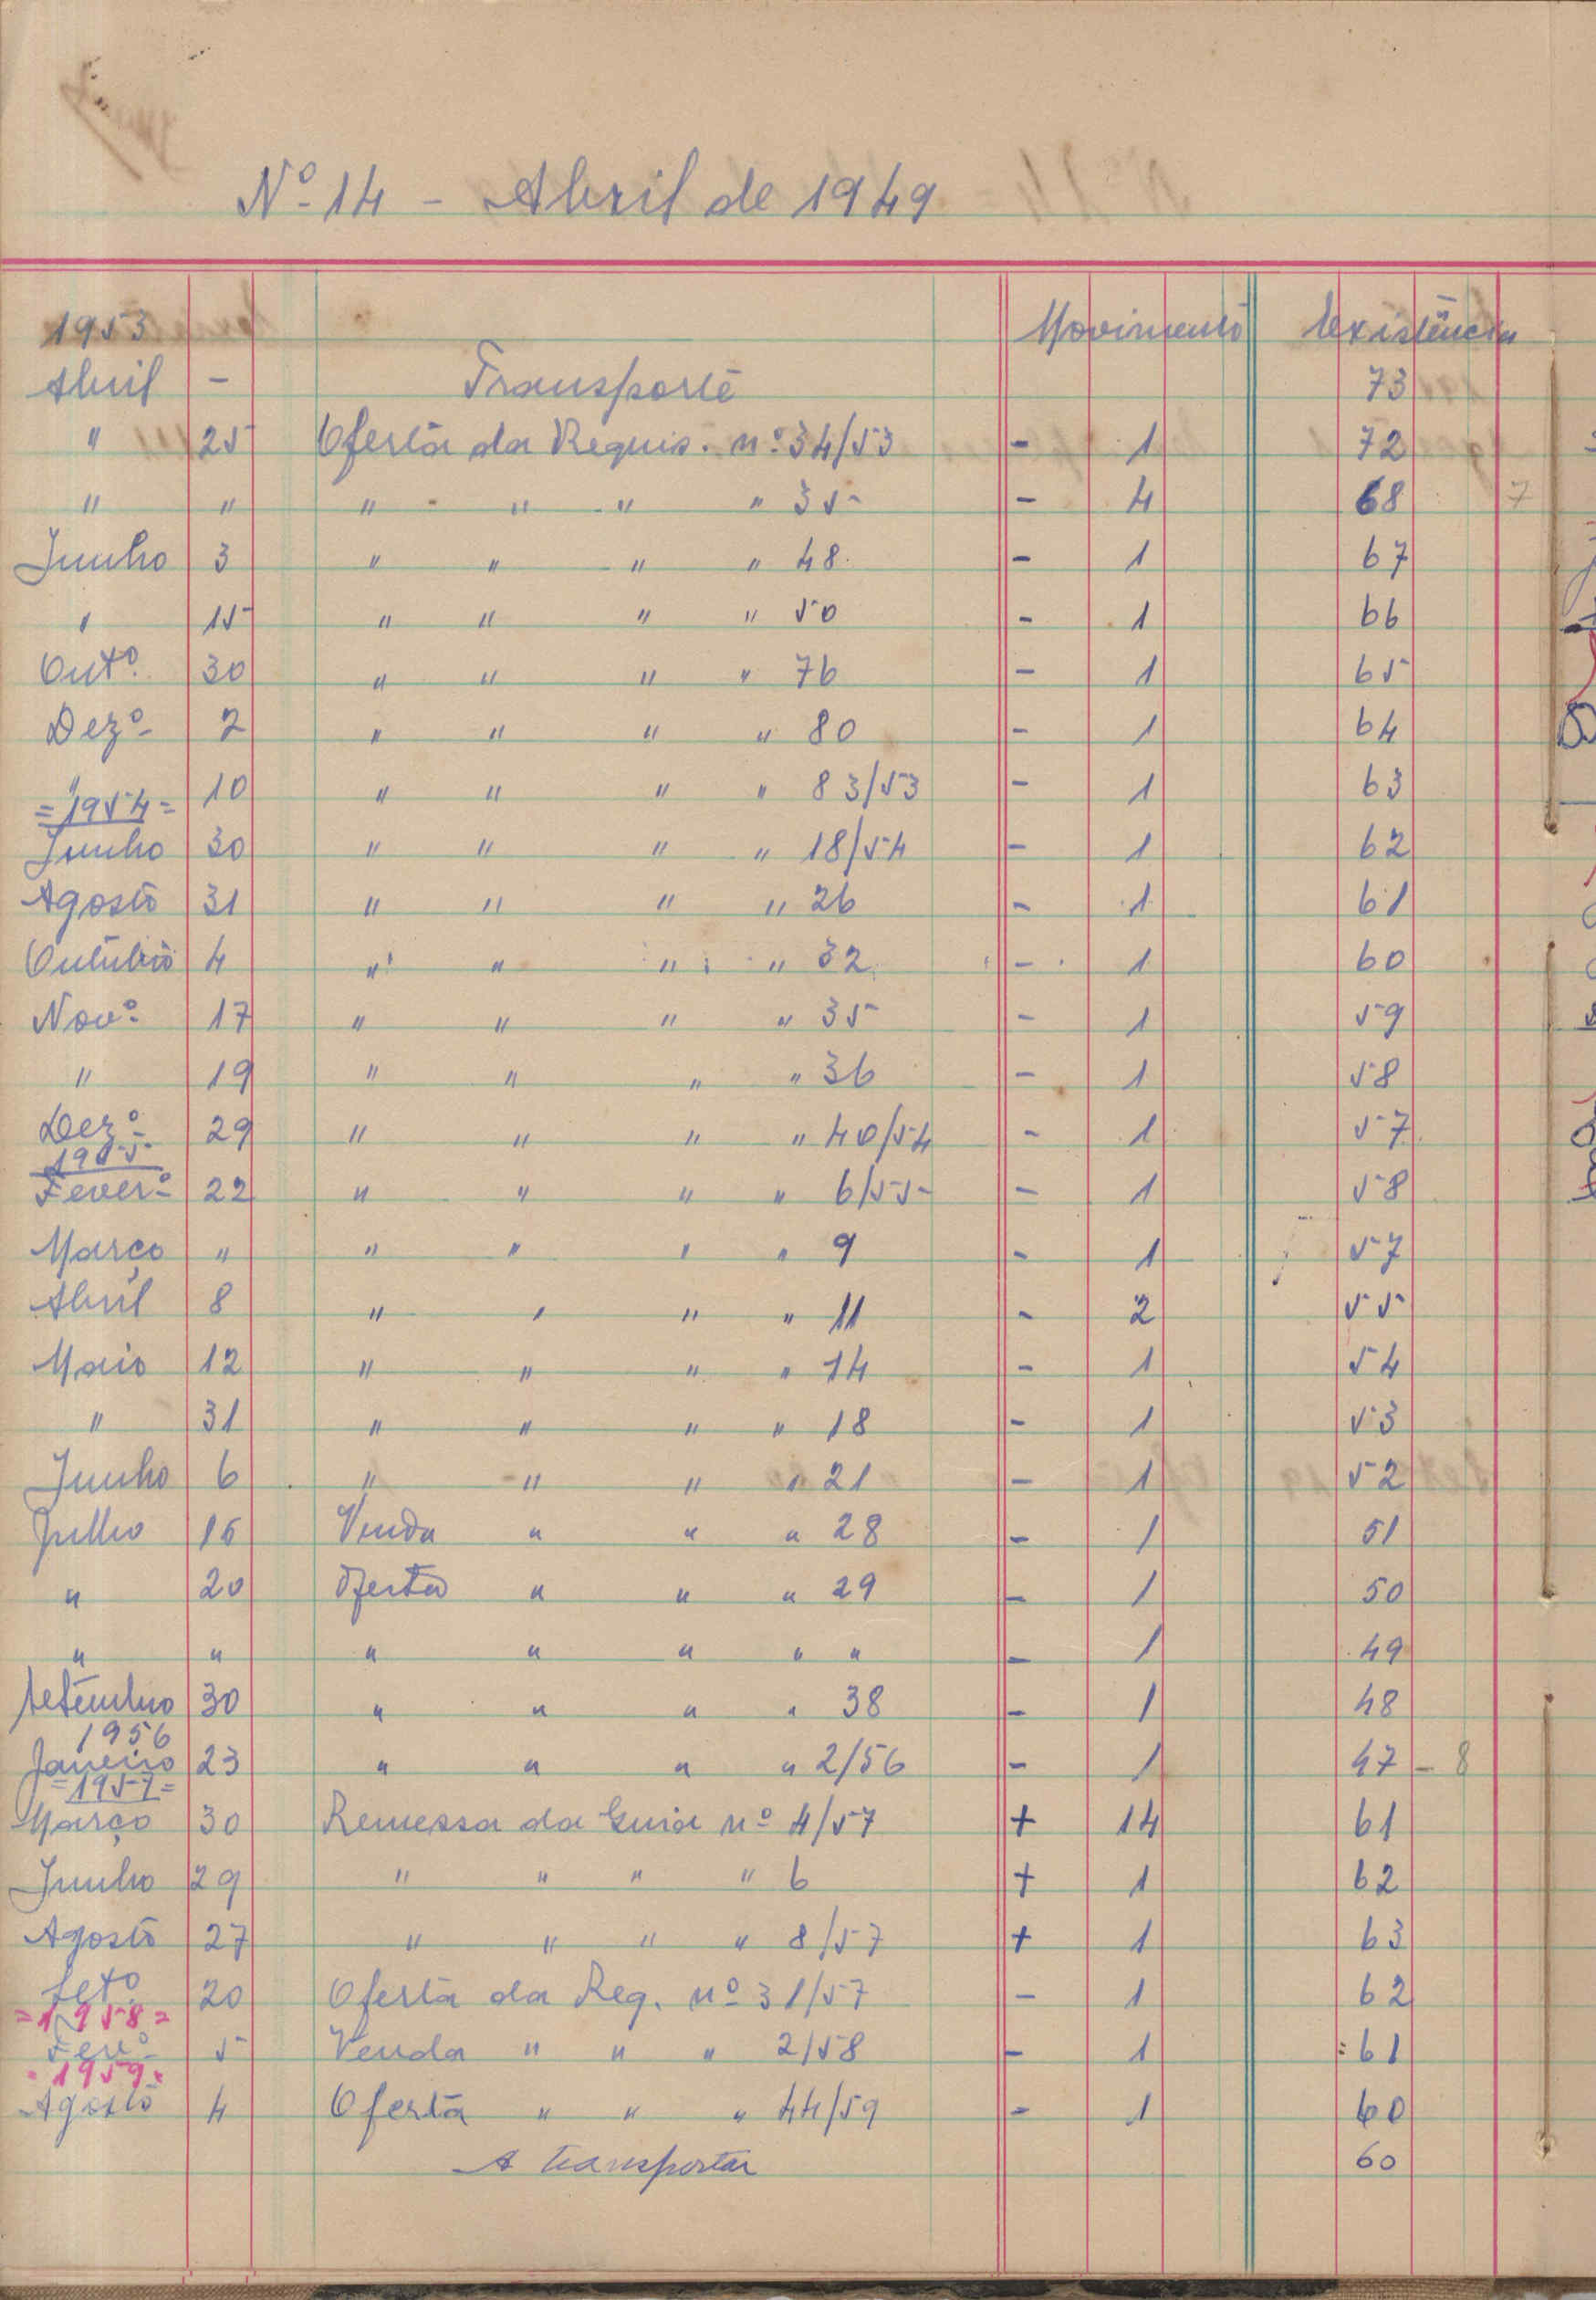 Nº 14 - Abril de 1949
1953 Movimento Existência
Abril - Transporte 73
" 25 Oferta da Requis. nº 34/53 - 1 72
" " " " " " 35 - 4 68 7
Junho 3 " " " " 48 - 1 67
" 15 " " " " 50 - 1 66
Outº 30 " " " " 76 - 1 65
Dezº 2 " " " " 80 - 1 64
" 10 " " " " 83/53 - 1 63
=1954=
Junho 30 " " " " 18/54 - 1 62
Agosto 31 " " " " 26 - 1 61
Outubro 4 " " " " 32 - 1 60
Novº 17 " " " " 35 - 1 59
" 19 " " " " 36 - 1 58
Dezº 29 " " " " 40/54 - 1 57
1955
Feverº 22 " " " " 6/55 - 1 58
Março " " " " " 9 - 1 57
Abril 8 " " " " 11 - 2 55
Maio 12 " " " " 14 - 1 54
" 31 " " " " 18 - 1 53
Junho 6 " " " " 21 - 1 52
Julho 15 Venda " " " 28 - 1 51
" 20 Oferta " " " 29 - 1 50
" " " " " " " - 1 49
Setembro 30 " " " " 38 - 1 48
1956
Janeiro 23 " " " " 2/56 - 1 47 - 8
=1957=
Março 30 Remessa da Guia nº 4/57 + 14 61
Junho 29 " " " " 6 + 1 62
Agosto 27 " " " " 8/57 + 1 63
Setº 20 Oferta da Req. nº 31/57 - 1 62
=1958=
Fevº 5 Venda " " " 2/58 - 1 61
1959
Agosto 4 Oferta " " " 44/59 - 1 60
A transportar 60